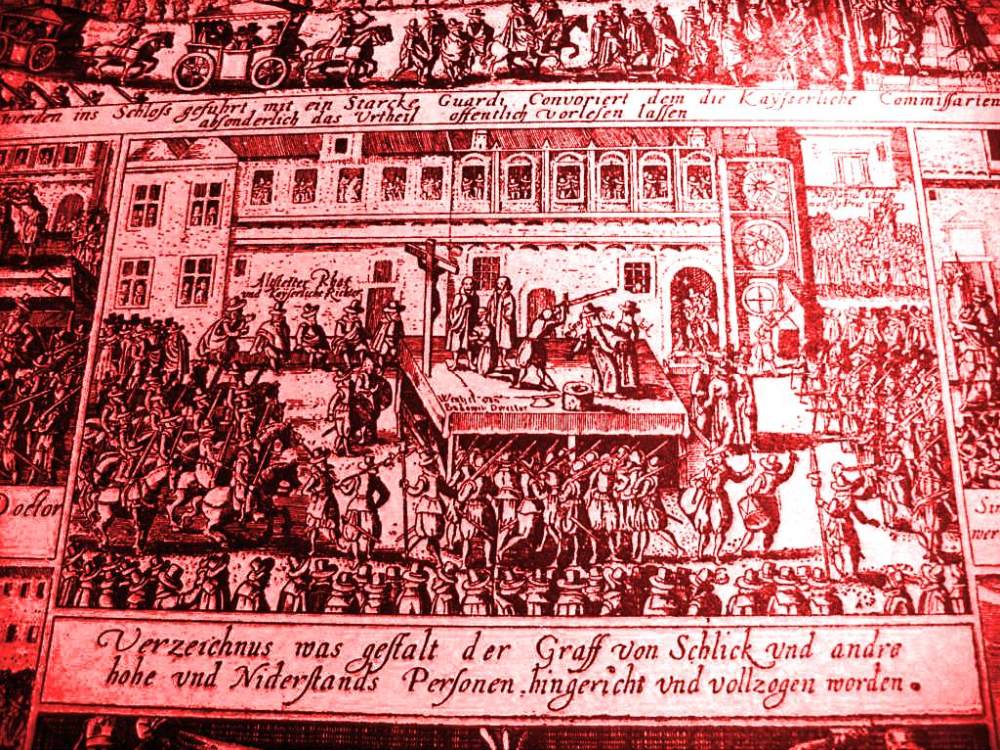 werden ins Schloss gefuhrt, mit ein Starcke Guardi Convoriert dem die Kaÿserliche Commissarien
absonderlich das Vrtheil offentlich vorlesen lassen
Altstetter Rhat
und Kaÿserliche Richter
Director
Doctor
Verzeichnus was gestalt der Graff von Schlick vnd andre
hohe vnd Niderstands Personen, hingericht vnd vollzogen worden.